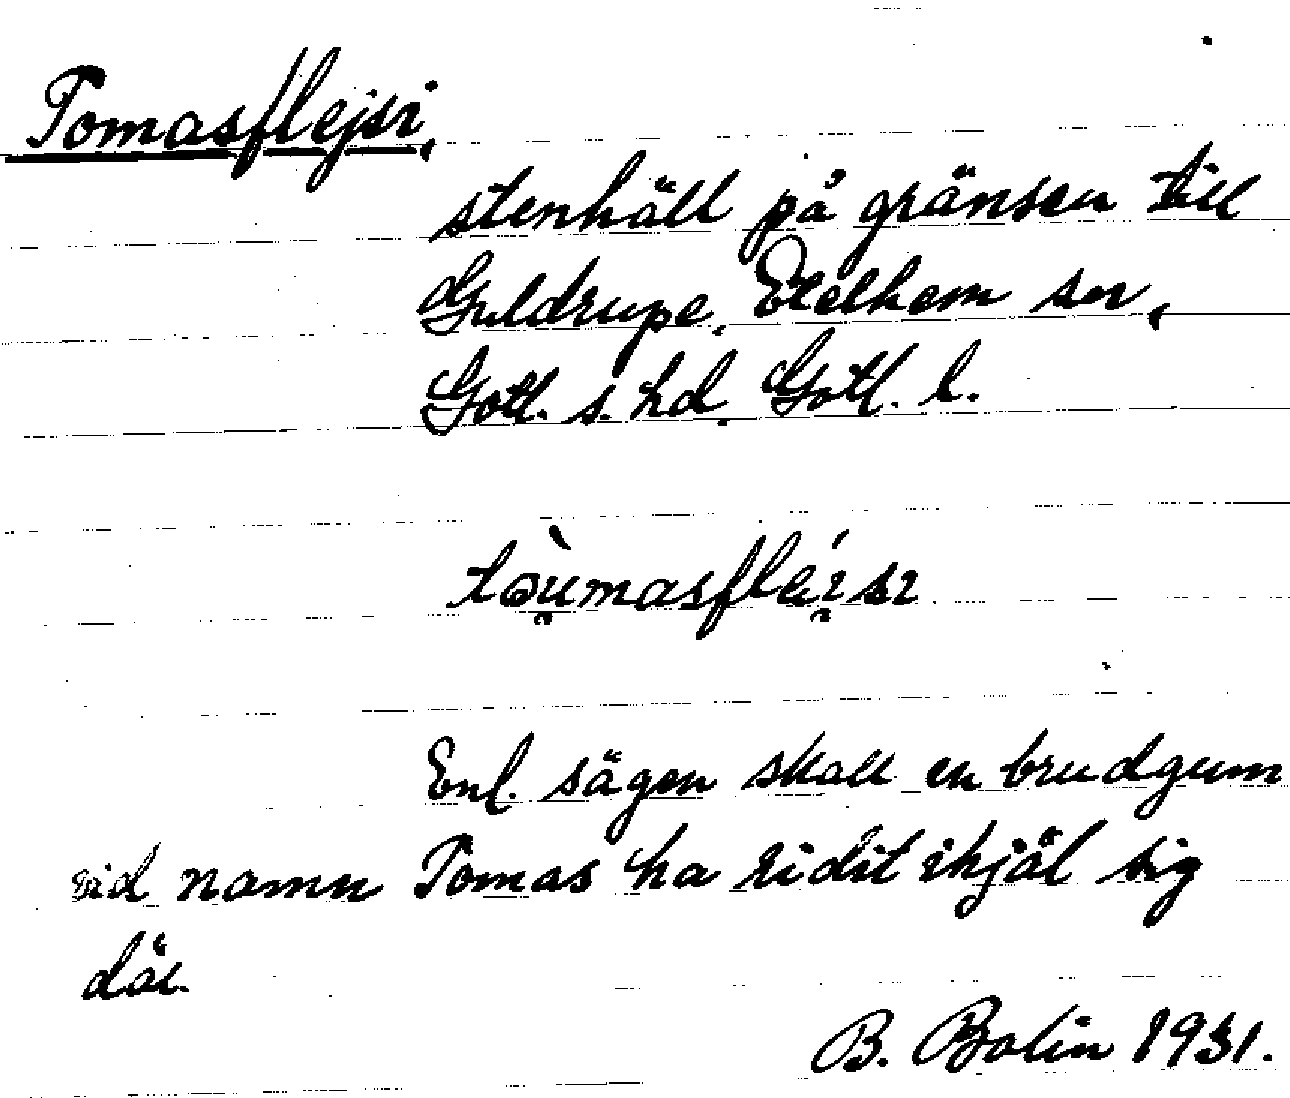 Tomasflejsi,
stenhäll på gränsen till
Guldrupe, Etelhem sn,
Gotl. s. hd, Gotl. l.
tòu̯masfléi̯sı
Enl. sägen skall en brudgum
vid namn Tomas ha ridit ihjäl sig
där.
B. Bolin 1931.